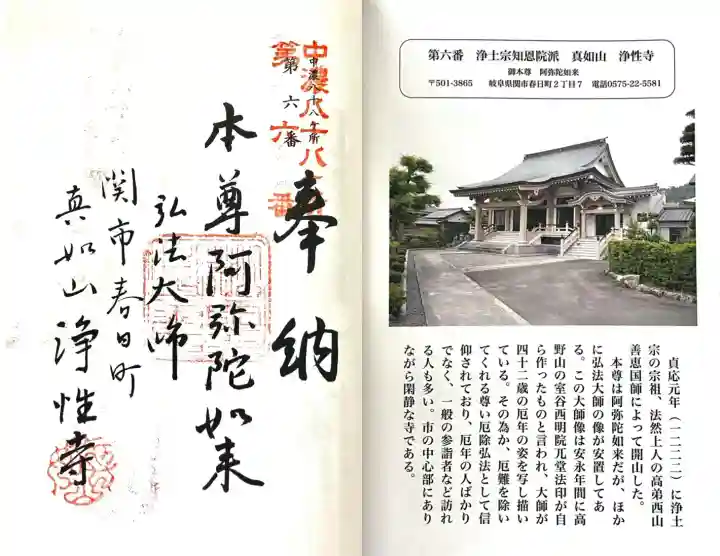 奉納
中濃八十八ヶ所
第六番
中濃八十八ヶ所
第六番
本尊阿弥陀如来
弘法大師
関市春日町
真如山浄性寺
第六番 浄土宗知恩院派 真如山 浄性寺
御本尊 阿弥陀如来
〒501-3865 岐阜県関市春日町2丁目7 電話0575-22-5581
貞応元年（一二二二）に浄土
宗の宗祖、法然上人の高弟西山
善恵国師によって開山した。
本尊は阿弥陀如来だが、ほか
に弘法大師の像が安置してあ
る。この大師像は安永年間に高
野山の室谷西明院兀堂法印が自
ら作ったものと言われ、大師が
四十二歳の厄年の姿を写し描い
ている。その為か、厄難を除い
てくれる尊い厄除弘法として信
仰されており、厄年の人ばかり
でなく、一般の参詣者など訪れ
る人も多い。市の中心部にあり
ながら閑静な寺である。